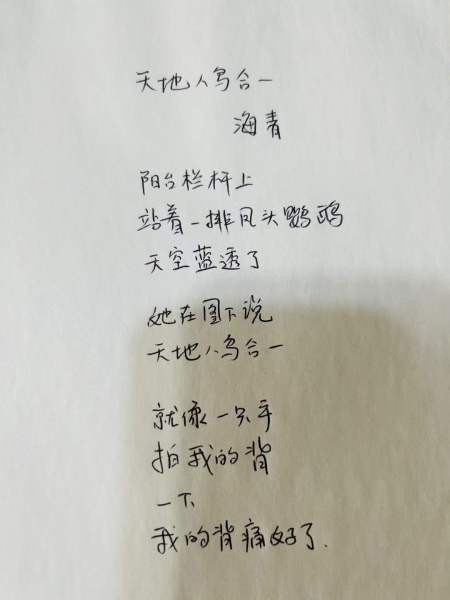 天地人鸟合一
海青
阳台栏杆上
站着一排凤头鹦鹉
天空蓝透了
她在图下说
天地人鸟合一
就像一只手
拍我的背
一下
我的背痛好了.